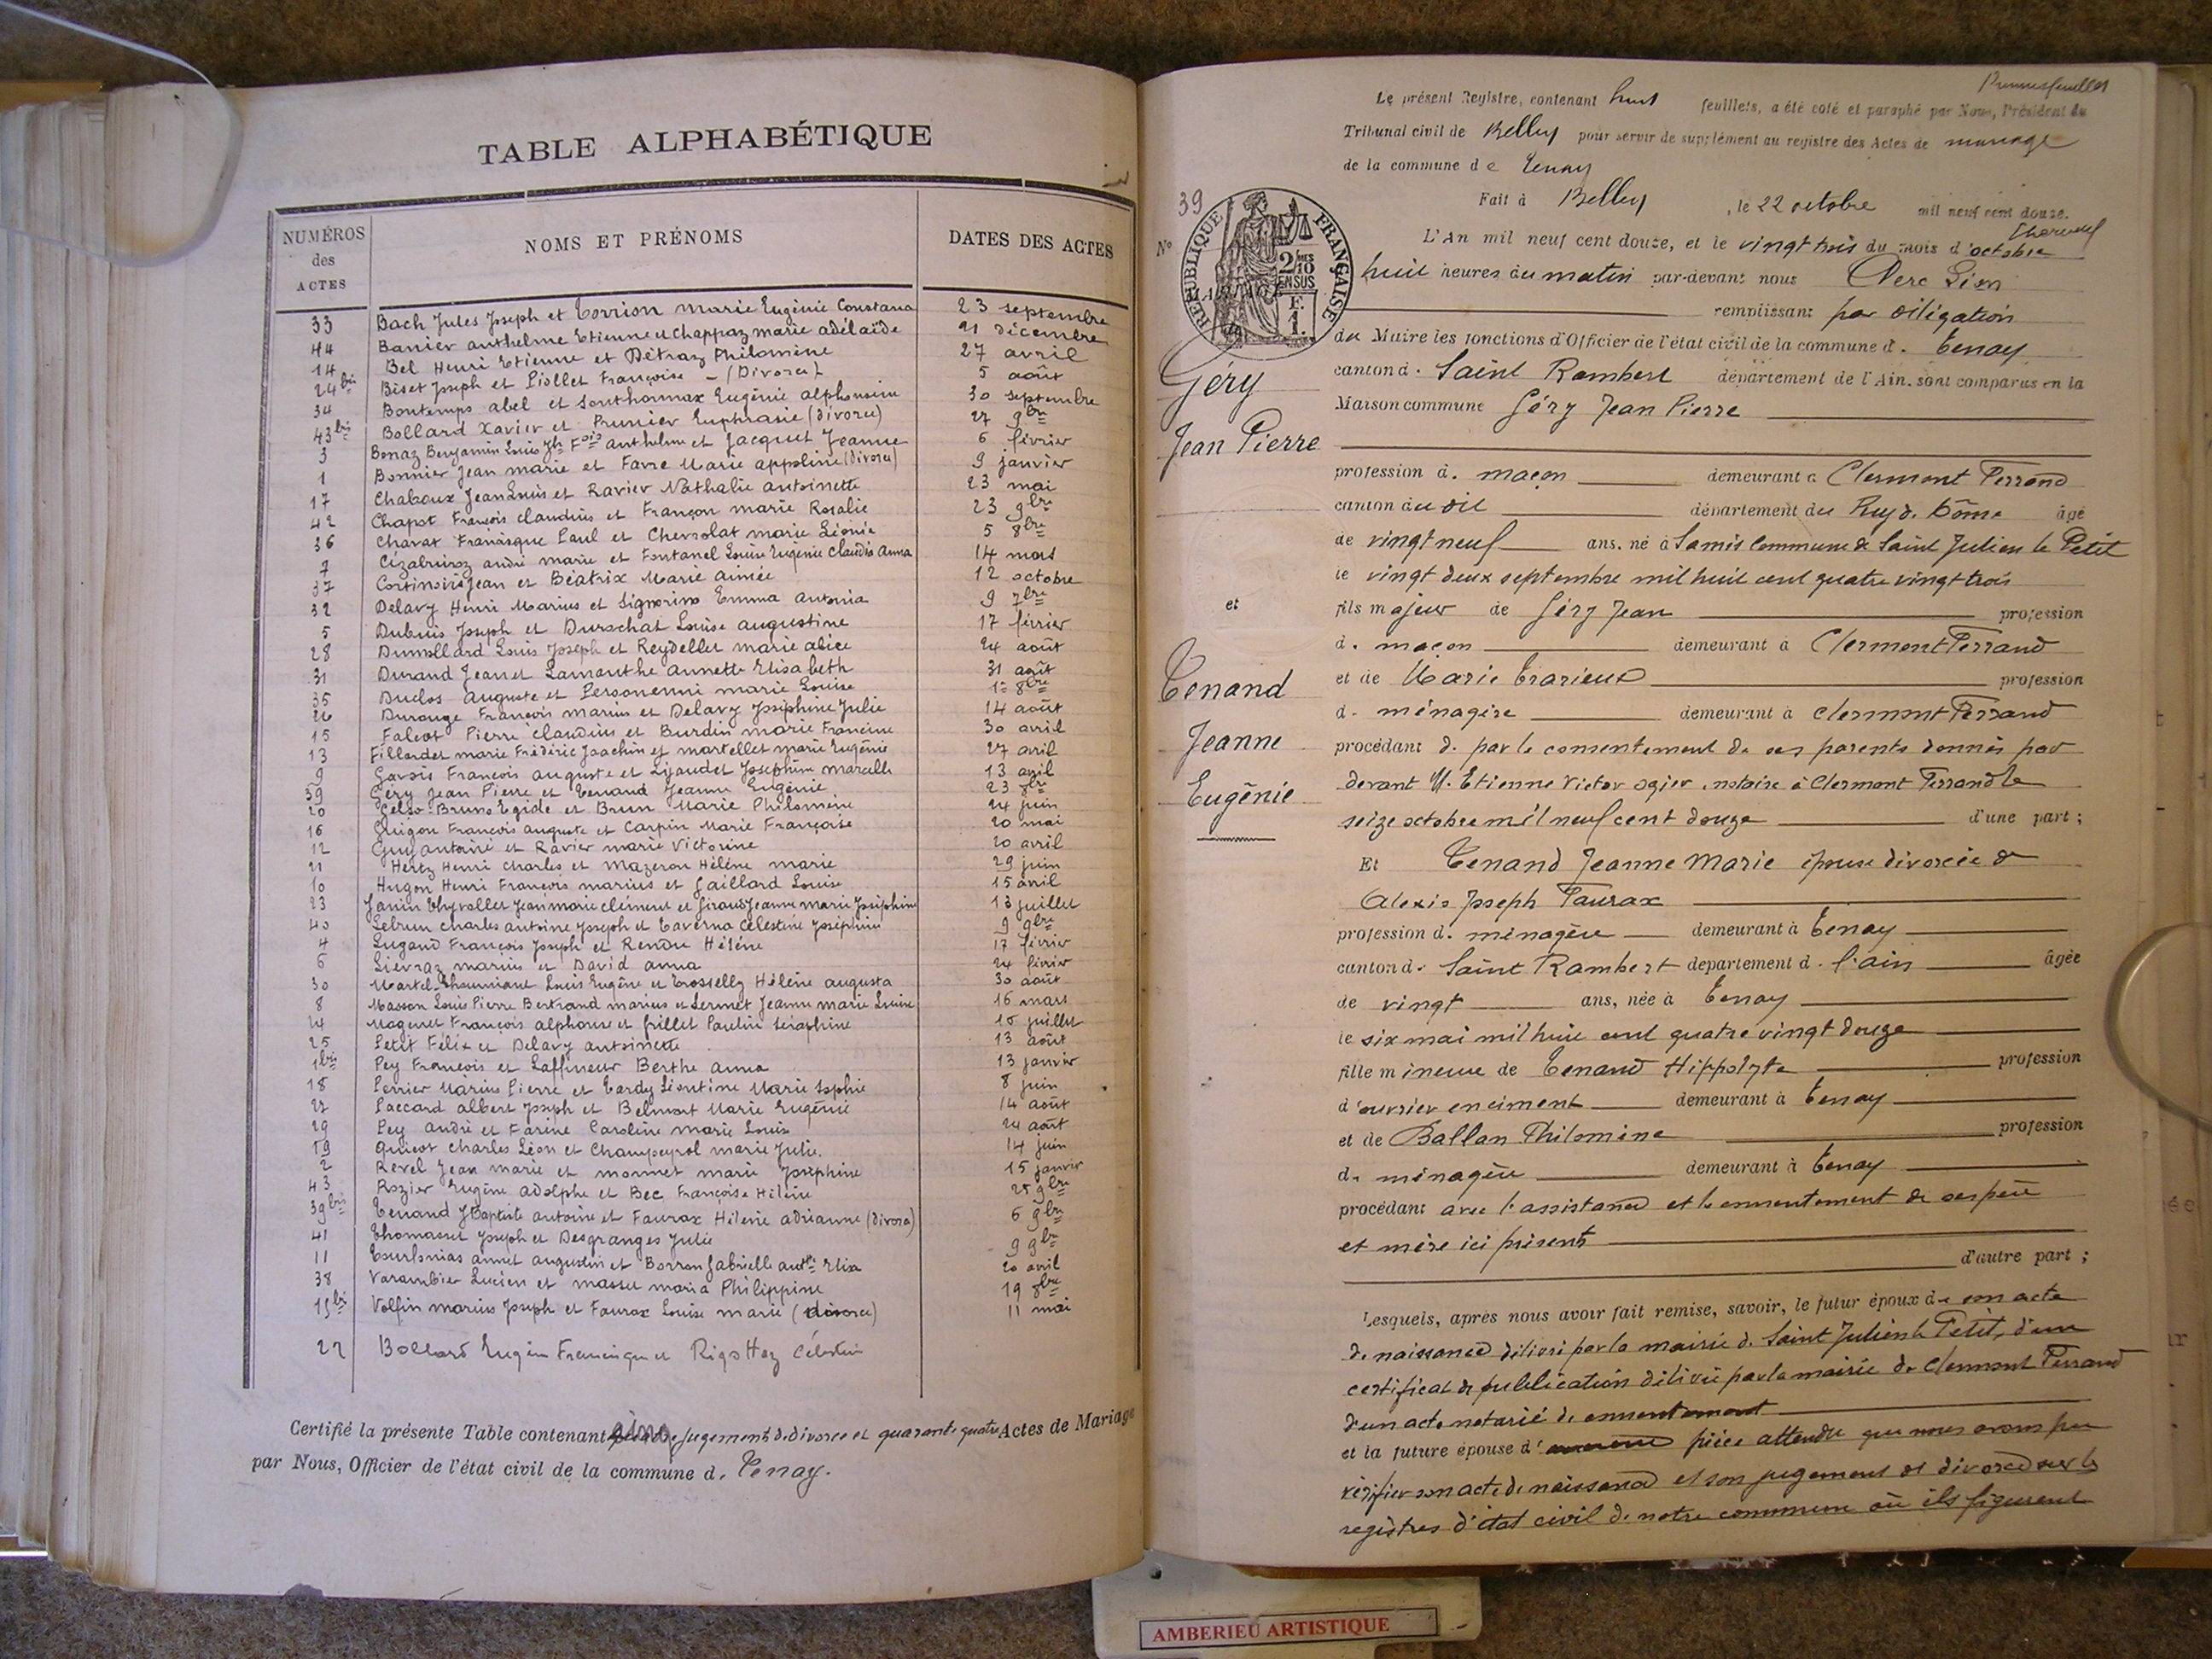 TABLE ALPHABÉTIQUE
NUMÉROS des ACTES
NOMS ET PRÉNOMS
DATES DES ACTES
33 Bach Jules Joseph et Torrion Marie Eugénie Constana 23 septembre
44 Banier anthelme Etienne et Chappaz marie adélaïde 21 décembre
14 Bel Henri Etienne et Détraz Philomène 27 avril
24 bis Biset Joseph et Piollet Françoise - (Divorce) 5 août
34 Bontemps abel et Southonnax Eugénie alphonsine 30 septembre
43 bis Bollard Xavier et Prunier Euphrasie (divorce) 27 9bre
3 Bonaz Benjamin Louis Jh Fois anthelme et Jacquet Jeanne 6 février
1 Bonnier Jean marie et Favre Marie appoline (divorce) 9 janvier
17 Chaboux Jean Louis et Ravier Nathalie antoinette 23 mai
42 Chapot François Claudius et Françon marie Rosalie 23 9bre
36 Charat Franasque Paul et Chevrolat marie Léonie 5 8bre
7 Cizabuiroz andré marie et Fontanel Louise Eugénie Claudia anna 14 mars
37 Cortinovis Jean et Béatrix Marie aimée 12 octobre
32 Delavy Henri Marius et Signorino Emma antonia 9 7bre
5 Dubuis Joseph et Durochat Louise augustine 17 février
28 Dumollard Louis Joseph et Reydellet marie alice 24 août
31 Durand Jean et Lamonthe annette Elisabeth 31 août
35 Duclos auguste et Personenni marie Louise 1er 8bre
26 Durouge François marius et Delavy Joséphine Julie 14 août
15 Falcot Pierre claudius et Burdin marie Francine 30 avril
13 Fillardet marie Frédéric Joachin et martellet marie Eugénie 27 avril
9 Gavois François auguste et Lijaudet Joséphine marcelle 13 avril
39 Géry Jean Pierre et Tenand Jeanne Eugénie 23 8bre
20 Gelso Bruno Egide et Brun Marie Philomène 24 juin
16 Guigon François auguste et Carpin Marie Françoise 20 mai
12 Guy antoine et Ravier marie Victorine 20 avril
21 Hertz Henri charles et Mazeron Hélène marie 29 juin
10 Hugon Henri François marius et Gaillard Louise 15 avril
23 Janin Thyvollet Jean marie clément et Giraud Jeanne marie Joséphine 13 juillet
40 Lebrun charles antoine Joseph et Taverna Célestine Joséphine 9 9bre
4 Lugand François Joseph et Rendu Hélène 17 février
6 Liévraz marius et David anna 24 février
30 Martel Louis Eugène et Trosselly Hélène augusta 30 août
8 Masson Louis Pierre Bertrand marius et Sermet Jeanne marie Louise 16 mars
24 Magenet François alphonse et Grillet Pauline Séraphine 15 juillet
25 Petit Félix et Delavy antoinette 13 août
1 bis Pey François et Laffineur Berthe anna 13 janvier
18 Perrier Marius Pierre et Tardy Léontine Marie Sophie 8 juin
27 Paccard albert Joseph et Belmont Marie Eugénie 14 août
29 Pey andré et Farine Caroline marie Louise 24 août
19 Quicot charles Léon et Champeyrol marie Julie 14 juin
2 Revel Jean marie et monnet marie Joséphine 15 janvier
43 Rozier Eugène adolphe et Bec Françoise Hélène 25 9bre
39 bis Tenand J Baptiste antoine et Faurax Hélène adrianne (divorce) 6 9bre
41 Thomasset Joseph et Desgranges Julie 9 9bre
11 Tourlonias annet augustin et Borron Gabrielle Elix 20 avril
38 Varambier Lucien et massu maria Philippine 19 8bre
15 bis Volfin marius Joseph et Faurax Louise marie (divorce) 11 mai
22 Bollard Eugène et Rigottaz Célestine
Certifié la présente Table contenant cinq jugements de divorce et quarante quatre Actes de Mariage
par Nous, Officier de l'état civil de la commune d. Tenay.
Le présent Registre, contenant huit feuillets, a été coté et paraphé par Nous, Président du
Tribunal civil de Belley pour servir de supplément au registre des Actes de mariage
de la commune de Tenay
Fait à Belley, le 22 octobre mil neuf cent douze.
39
N°
RÉPUBLIQUE FRANÇAISE
L'An mil neuf cent douze, et le vingt trois du mois d'octobre
huit heures du matin par-devant nous Clerc Léon
remplissant par délégation
du Maire les fonctions d'Officier de l'état civil de la commune d. Tenay
canton d. Saint Rambert département de l'Ain, sont comparus en la
Maison commune Géry Jean Pierre
Géry
Jean Pierre
et
Tenand
Jeanne
Eugénie
profession d. maçon demeurant à Clermont Ferrand
canton du dit département du Puy d. Dôme âgé
de vingt neuf ans, né à Samis Commune de Saint Julien le Petit
le vingt deux septembre mil huit cent quatre vingt trois
fils majeur de Géry Jean profession
d. maçon demeurant à Clermont Ferrand
et de Marie Trarieux profession
d. ménagère demeurant à Clermont Ferrand
procédant d. par le consentement de ses parents donnés par
devant M. Etienne Victor Ogier, notaire à Clermont Ferrand le
seize octobre mil neuf cent douze d'une part ;
Et Tenand Jeanne Marie épouse divorcée de
Alexis Joseph Faurax
profession d. ménagère demeurant à Tenay
canton d. Saint Rambert département d. l'ain âgée
de vingt ans, née à Tenay
le six mai mil huit cent quatre vingt douze
fille mineure de Tenand Hippolyte profession
d'ouvrier en ciment demeurant à Tenay
et de Ballan Philomine profession
d. ménagère demeurant à Tenay
procédant avec l'assistance et le consentement de ses père
et mère ici présents
d'autre part ;
Lesquels, après nous avoir fait remise, savoir, le futur époux de son acte
de naissance délivré par la mairie d. Saint Julien le Petit, d'un
certificat de publication délivré par la mairie de Clermont Ferrand
d'un acte notarié de consentement
et la future épouse d' pièce attendu que nous avons pu
vérifier son acte de naissance et son jugement de divorce sur les
registres d'état civil de notre commune où ils figurent
AMBERIEU ARTISTIQUE